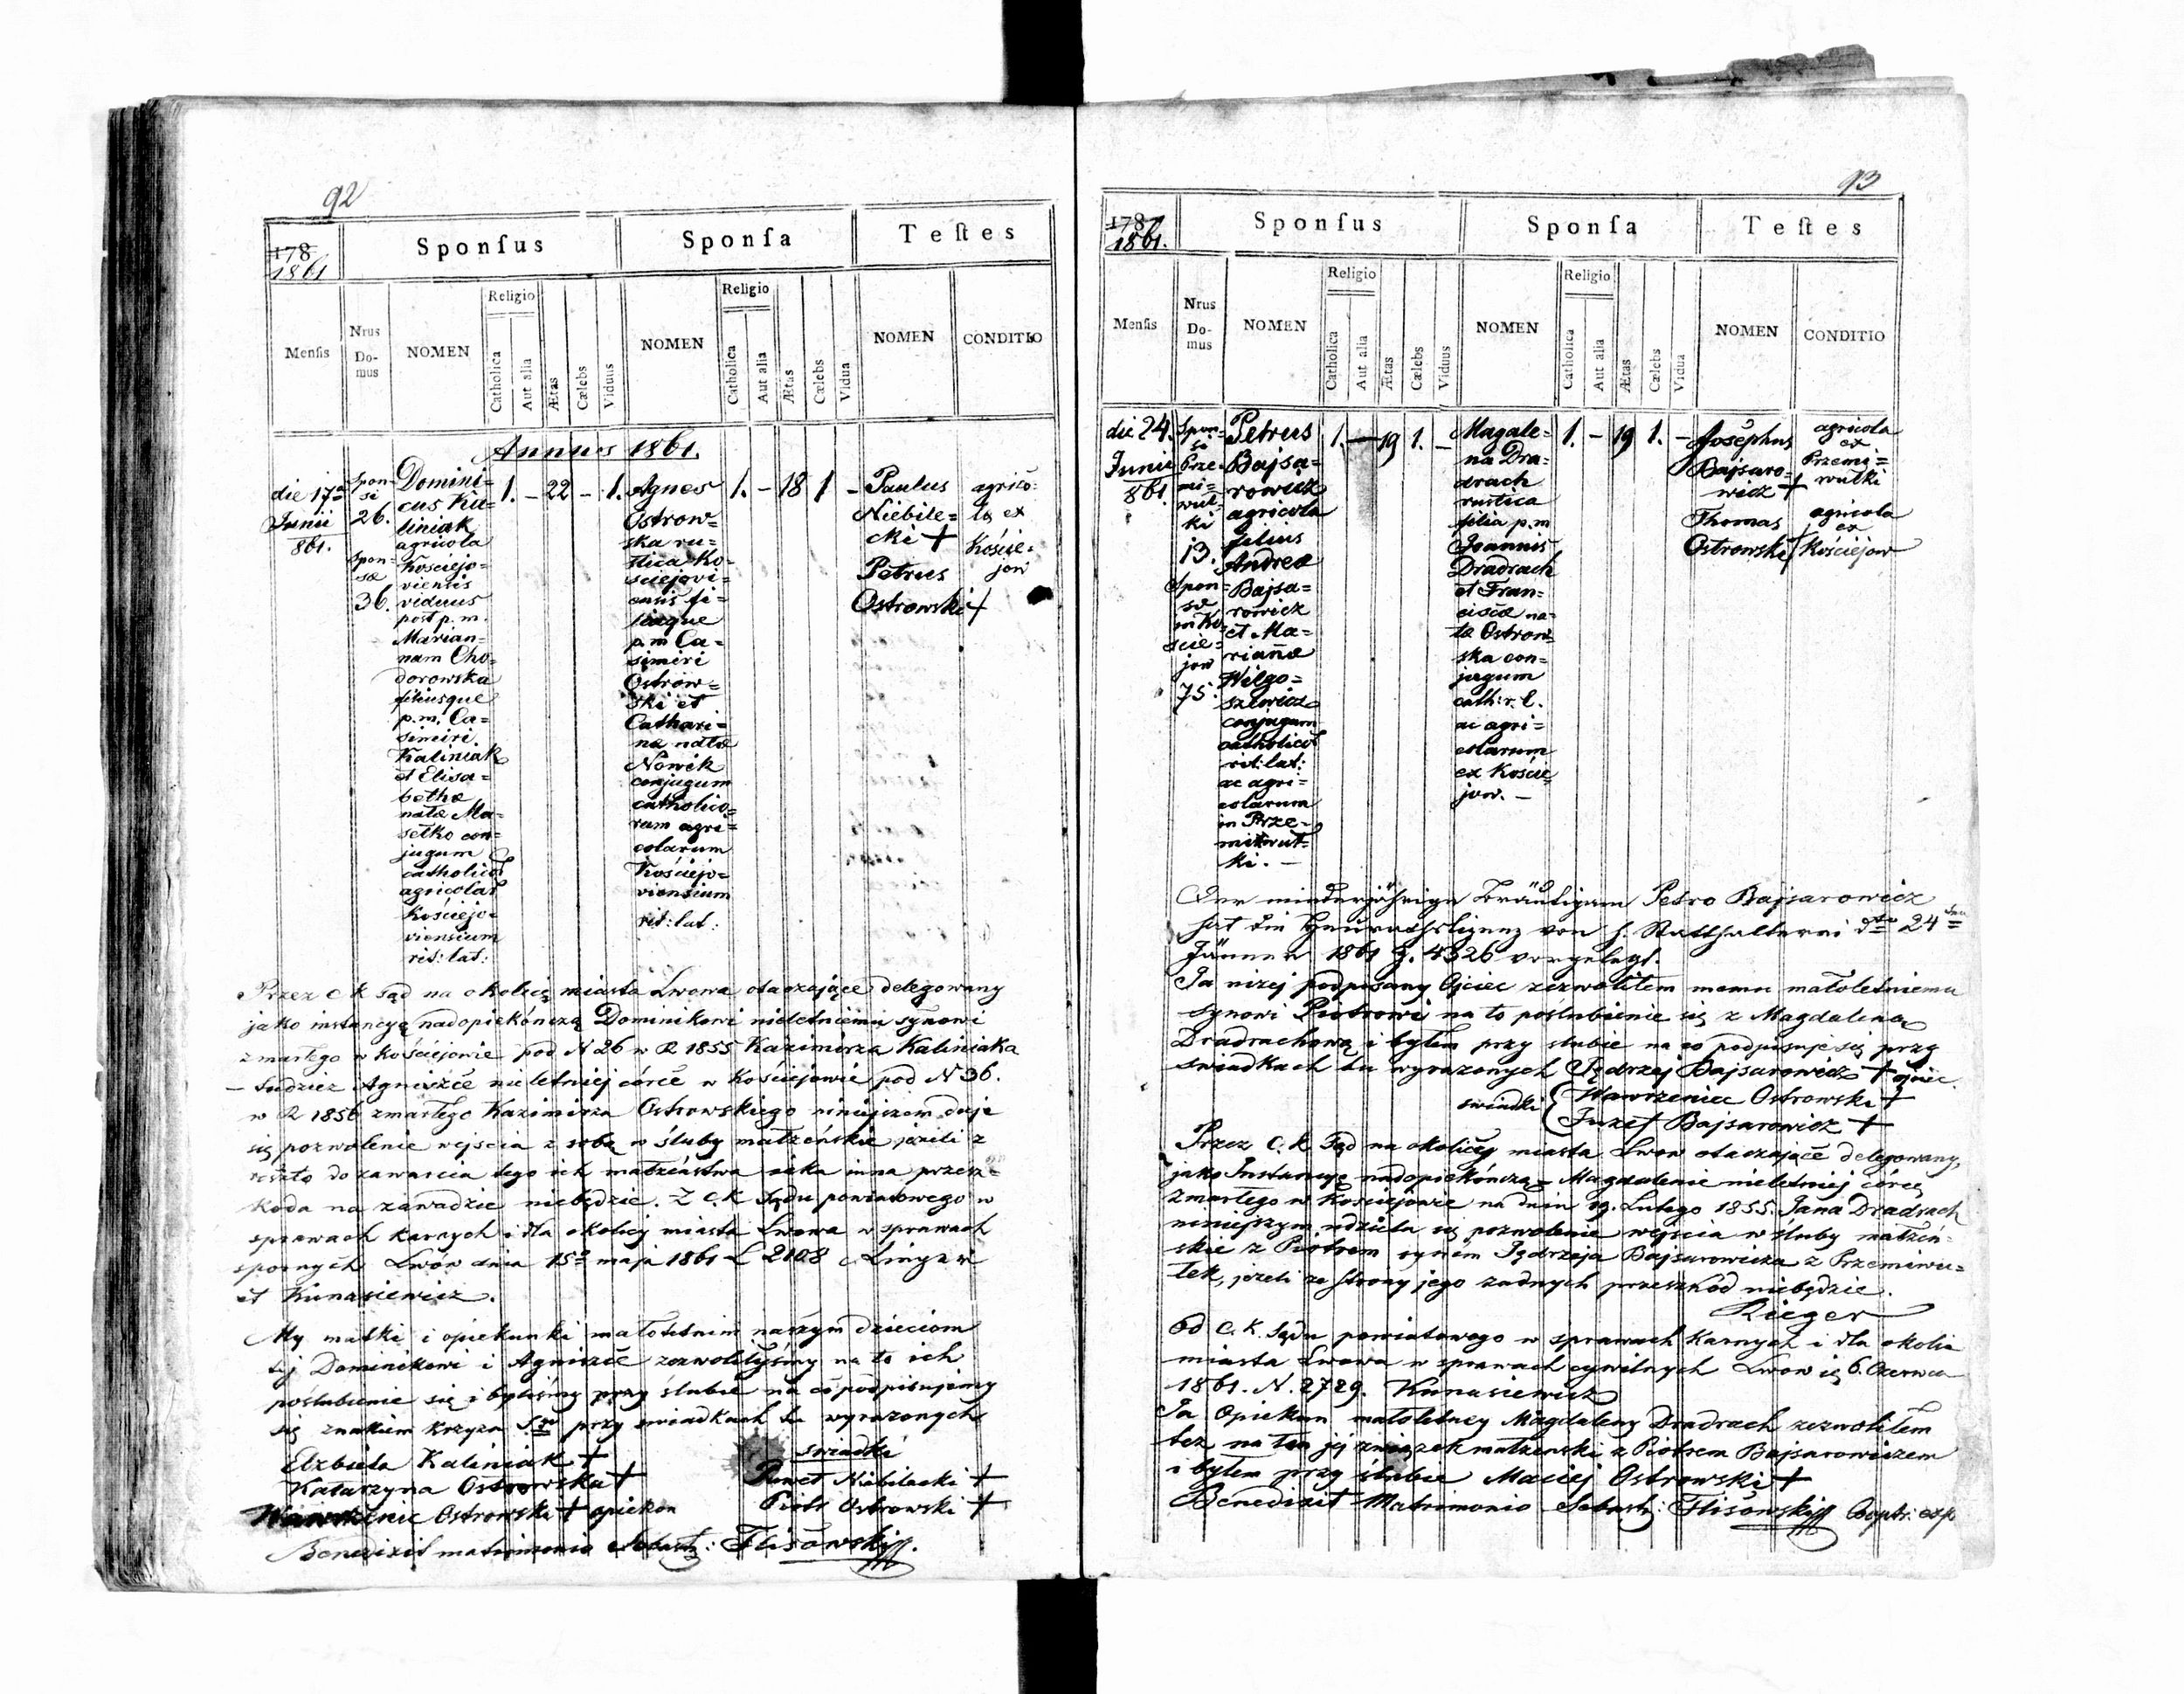 92
178
1861
Sponſus
Sponſa
Teſtes
Menſis
Nrus Do-mus
NOMEN
Religio
Catholica
Aut alia
Ætas
Cælebs
Viduus
NOMEN
Religio
Catholica
Aut alia
Ætas
Cælebs
Vidua
NOMEN
CONDITIO
Annus 1861.
die 17a
Junii
861.
Spon-
si
26.
Spon-
sæ
36.
Domini-
cus Ka-
liniak
agricola
Kościejo-
viensis
viduus
post p. m.
Marian-
nam Cho-
dorowska
filiusque
p. m. Ca-
simiri
Kaliniak
et Elisa-
bethæ
natæ Ma-
setko con-
jugum
catholicor
agricolar
Kościejo-
viensium
rit: lat:
1. – 22 – 1.
Agnes
Ostrow-
ska ru-
stica Ko-
ściejovi-
ensis fi-
liaque
p. m. Ca-
simiri
Ostrow-
ski et
Cathari-
næ natæ
Nowik
conjugum
catholico-
rum agri-
colarum
Kościejo-
viensium
rit: lat:
1. – 18 1 –
Paulus
Niebile-
cki +
Petrus
Ostrowski +
agrico-
la ex
Koście-
jow
Przez c k Sąd na okolicę miasta Lwowa otaczające delegowany
jako instancyę nadopiekónczą Dominikowi nieletniemu synowi
zmarłego w Kościejowie pod N 26 w R 1855 Kazimirza Kaliniaka
– tudzież Agniszce nieletniej córce w Kościejowie pod N 36.
w R 1856 zmarłego Kazimirza Ostrowskiego niniejszem daje
się pozwolenie wejścia z sobą w śluby małżeńskie jeżeli z
reszto do zawarcia tego ich małżeństwa jaka inna przesz-
koda na zawadzie niebędzie. Z c. k Sądu powiatowego w
sprawach karnych i dla okolicy miasta Lwowa w sprawach
spornych Lwów dnia 15o maja 1861 L 2108
et Kunasiewicz.
My matki i opiekunki małoletnim naszym dzieciom
tij Dominikowi i Agniszce zezwoliłyśmy na to ich
poślubienie się i byliśmy przy ślubie na co podpisujemy
się znakiem krzyża Sgo przy swiadkach tu wyrazonych
Elzbieta Kaliniak +
Katarzyna Ostrowska +
Wawrzenic Ostrowski + opiekun
swiadki
Paweł Niebilecki +
Piotr Ostrowski +
Benedixit matrimonio Sebast: Flisowski
93
178
1861.
Sponſus
Sponſa
Teſtes
Menſis
Nrus Do-mus
NOMEN
Religio
Catholica
Aut alia
Ætas
Cælebs
Viduus
NOMEN
Religio
Catholica
Aut alia
Ætas
Cælebs
Vidua
NOMEN
CONDITIO
die 24.
Junii
861
Spon-
si
Prze-
mi-
wul-
ki
13.
Spon-
sæ
in Ko-
ście-
jow
75.
Petrus
Bajsa-
rowicz
agricola
filius
Andreæ
Bajsa-
rowicz
et Ma-
riannæ
Wilgo-
szewicz
conjugum
catholicor
rit: lat:
ac agri-
colarum
in Prze-
miwul-
ki. –
1. – 19 1. –
Magale-
na Dra-
drach
rustica
filia p. m
Joannis
Dradrach
et Fran-
ciscæ na-
tæ Ostrow-
ska con-
jugum
cath: r. l.
ac agri-
colarum
ex Koście-
jow. –
1. – 19 1. –
Josephus
Bajsaro-
wicz +
Thomas
Ostrowski +
agricola
ex
Przemi-
wulki
agricola
ex
Kościejow
Der minderjährige Bräutigam Petro Bajsarowicz
hat die Heurathslizenz von h. Statthalterei dto 24
Jänner 1861 Z. 4326 vorgelegt.
Ja niżej podpisany Ojciec zezwoliłem memu małoletniemu
synowi Piotrowi na to poślubienie się z Magdaleną
Dradrachową i byłem przy slubie na co podpisuje się przy
swiadkach tu wyrazonych Jędrzej Bajsarowicz + ojciec
swiadki { Wawrzeniec Ostrowski +
Juzef Bajsarowicz +
Przez c. k Sąd na okolicę miasta Lwow otaczające delegowany,
jako Instancyę nadopiekónczą – Magdalenie nieletniej córce
zmarłego w Kościejowie na dniu 19. Lutego 1855. Jana Dradrach
niniejszym udziela się pozwolenie wejścia w śluby małżeń-
skie z Piotrem synem Jędrzeja Bajsarowicza z Przemiwu-
lek, jeżeli ze strony jego żadnych przeszkod niebędzie.
Rieger
Od c. k. Sądu powiatowego w sprawach karnych i dla okolic
miasta Lwowa w sprawach cywilnych Lwow 6. Czerwca
1861. N. 2729. Kunasiewicz
Ja Opiekun małoletney Magdaleny Dradrach zezwoliłem
tez na ten jej związek małzenski z Piotrem Bajsarowiczem
i byłem przy ślubie Maciej Ostrowski +
Benedixit Matrimonio Sebast: Flisowski Cooptr: exp